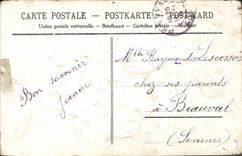 CARTE POSTALE — POSTKARTE — POST-CARD
Union postale universelle — Briefkaart — Cartolina postale
Bon souvenir
Jeanne
Mlle Raymonde
chez ses parents
à Beauval
(Somme)